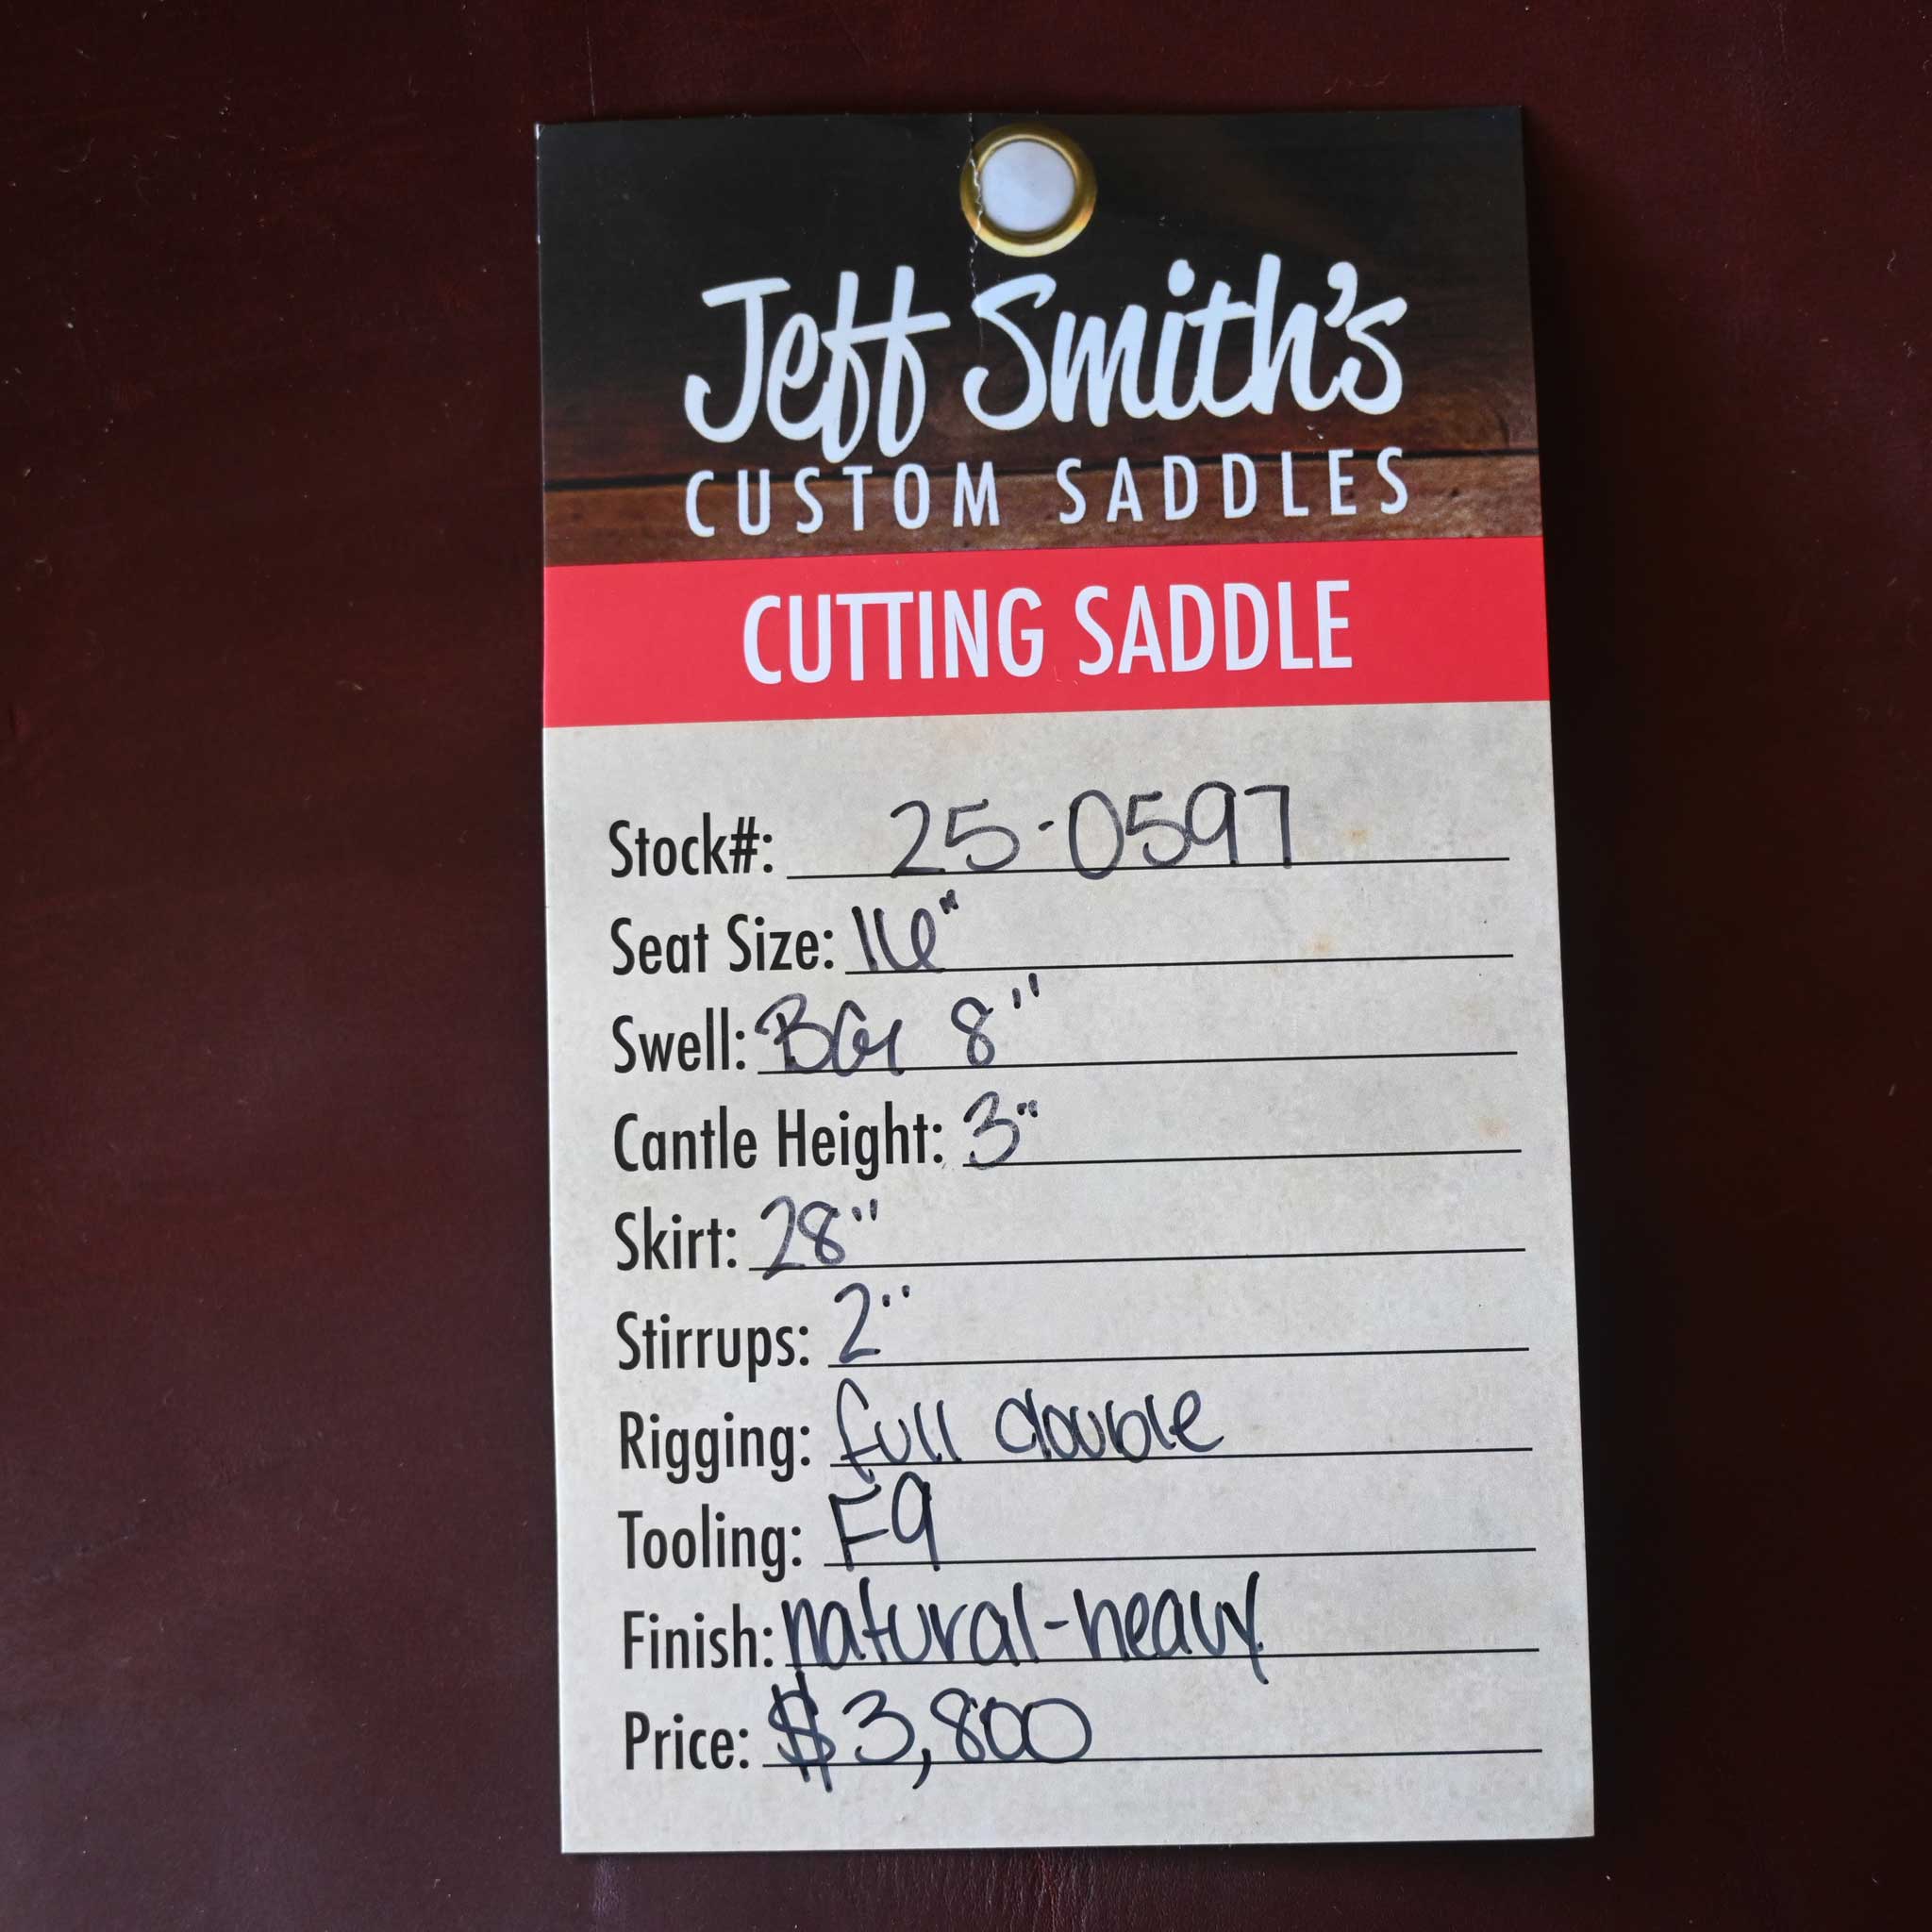 Jeff Smith's
CUSTOM SADDLES
CUTTING SADDLE
Stock#: 25-0597
Seat Size: 16"
Swell: BG 8"
Cantle Height: 3"
Skirt: 28"
Stirrups: 2"
Rigging: full double
Tooling: F9
Finish: natural-heavy
Price: $3,800